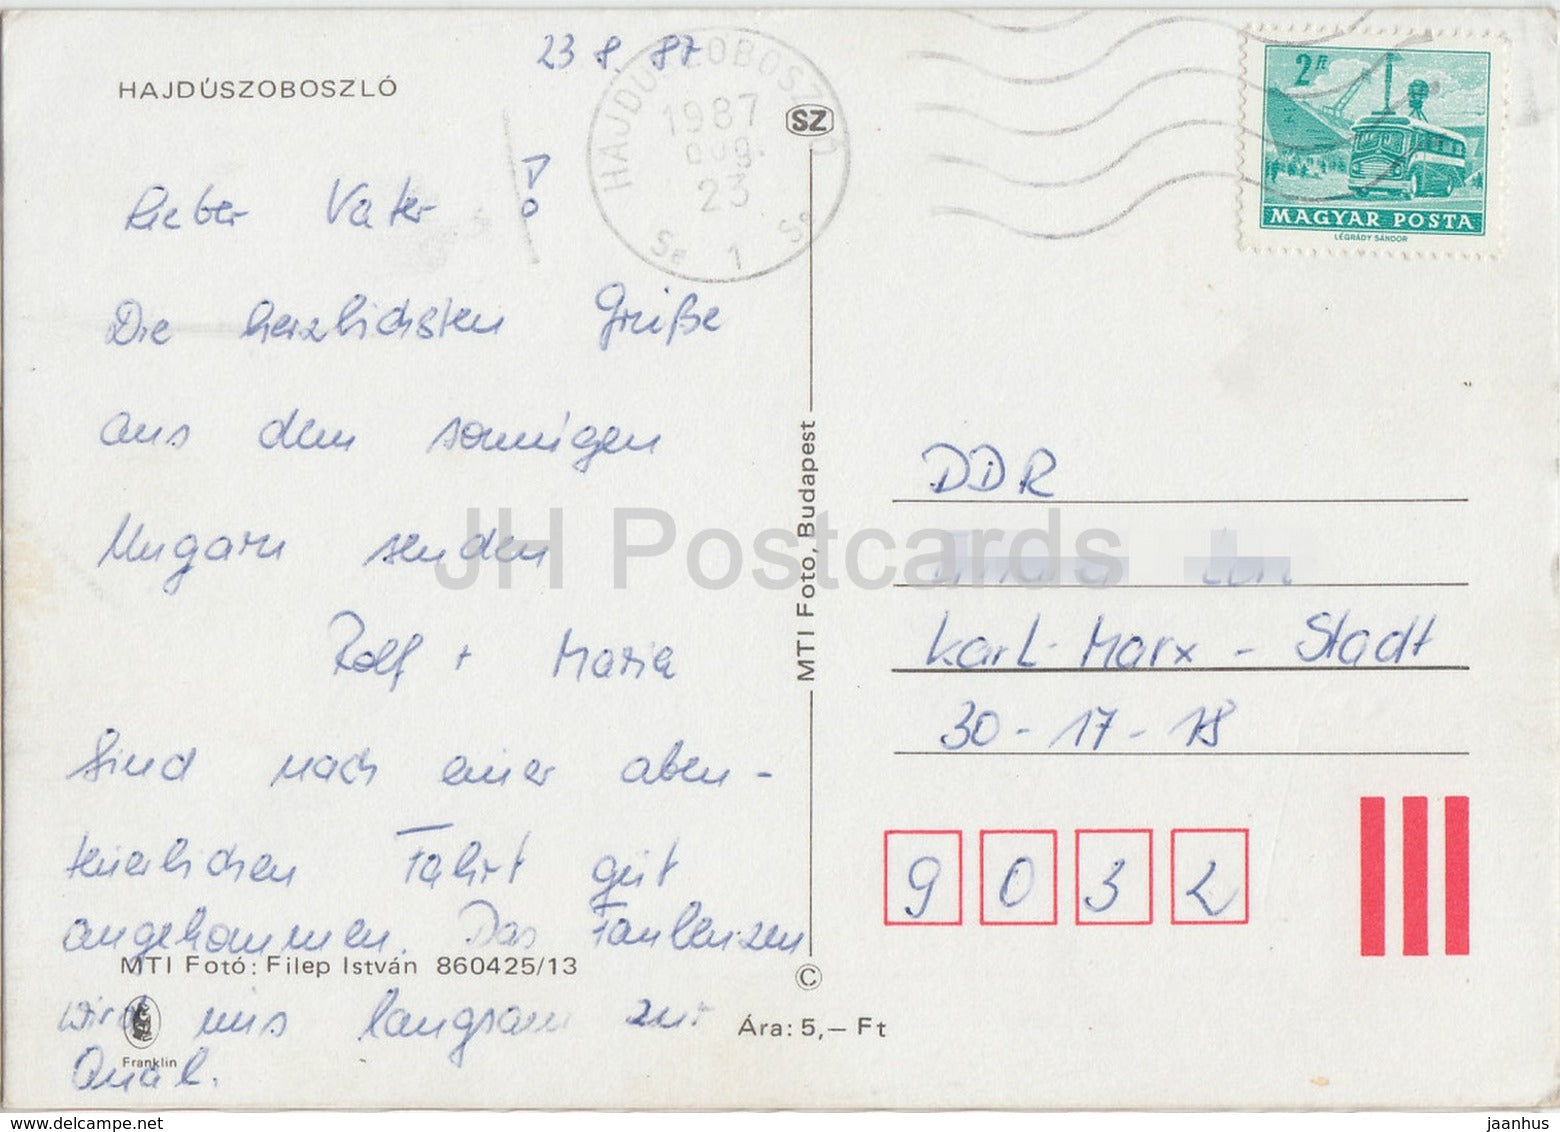 23 8 87
HAJDÚSZOBOSZLÓ
HAJDÚSZOBOSZLÓ
1987
aug.
23
Se 1 Se
SZ
2 Ft
MAGYAR POSTA
LÉGRÁDY SÁNDOR
Lieber Vater!
Die herzlichsten Grüße
aus dem sonnigen
Ungarn senden
Rolf + Maria
Sind nach einer aben-
teuerlichen Fahrt gut
angekommen. Das Faulenzen
wird uns langsam zur
Qual.
MTI Fotó: Filep István 860425/13
Franklin
Ára: 5,— Ft
MTI Foto, Budapest
©
DDR
Karl-Marx-Stadt
30-17-18
9032
JH Postcards
delcampe.net
jaanhus